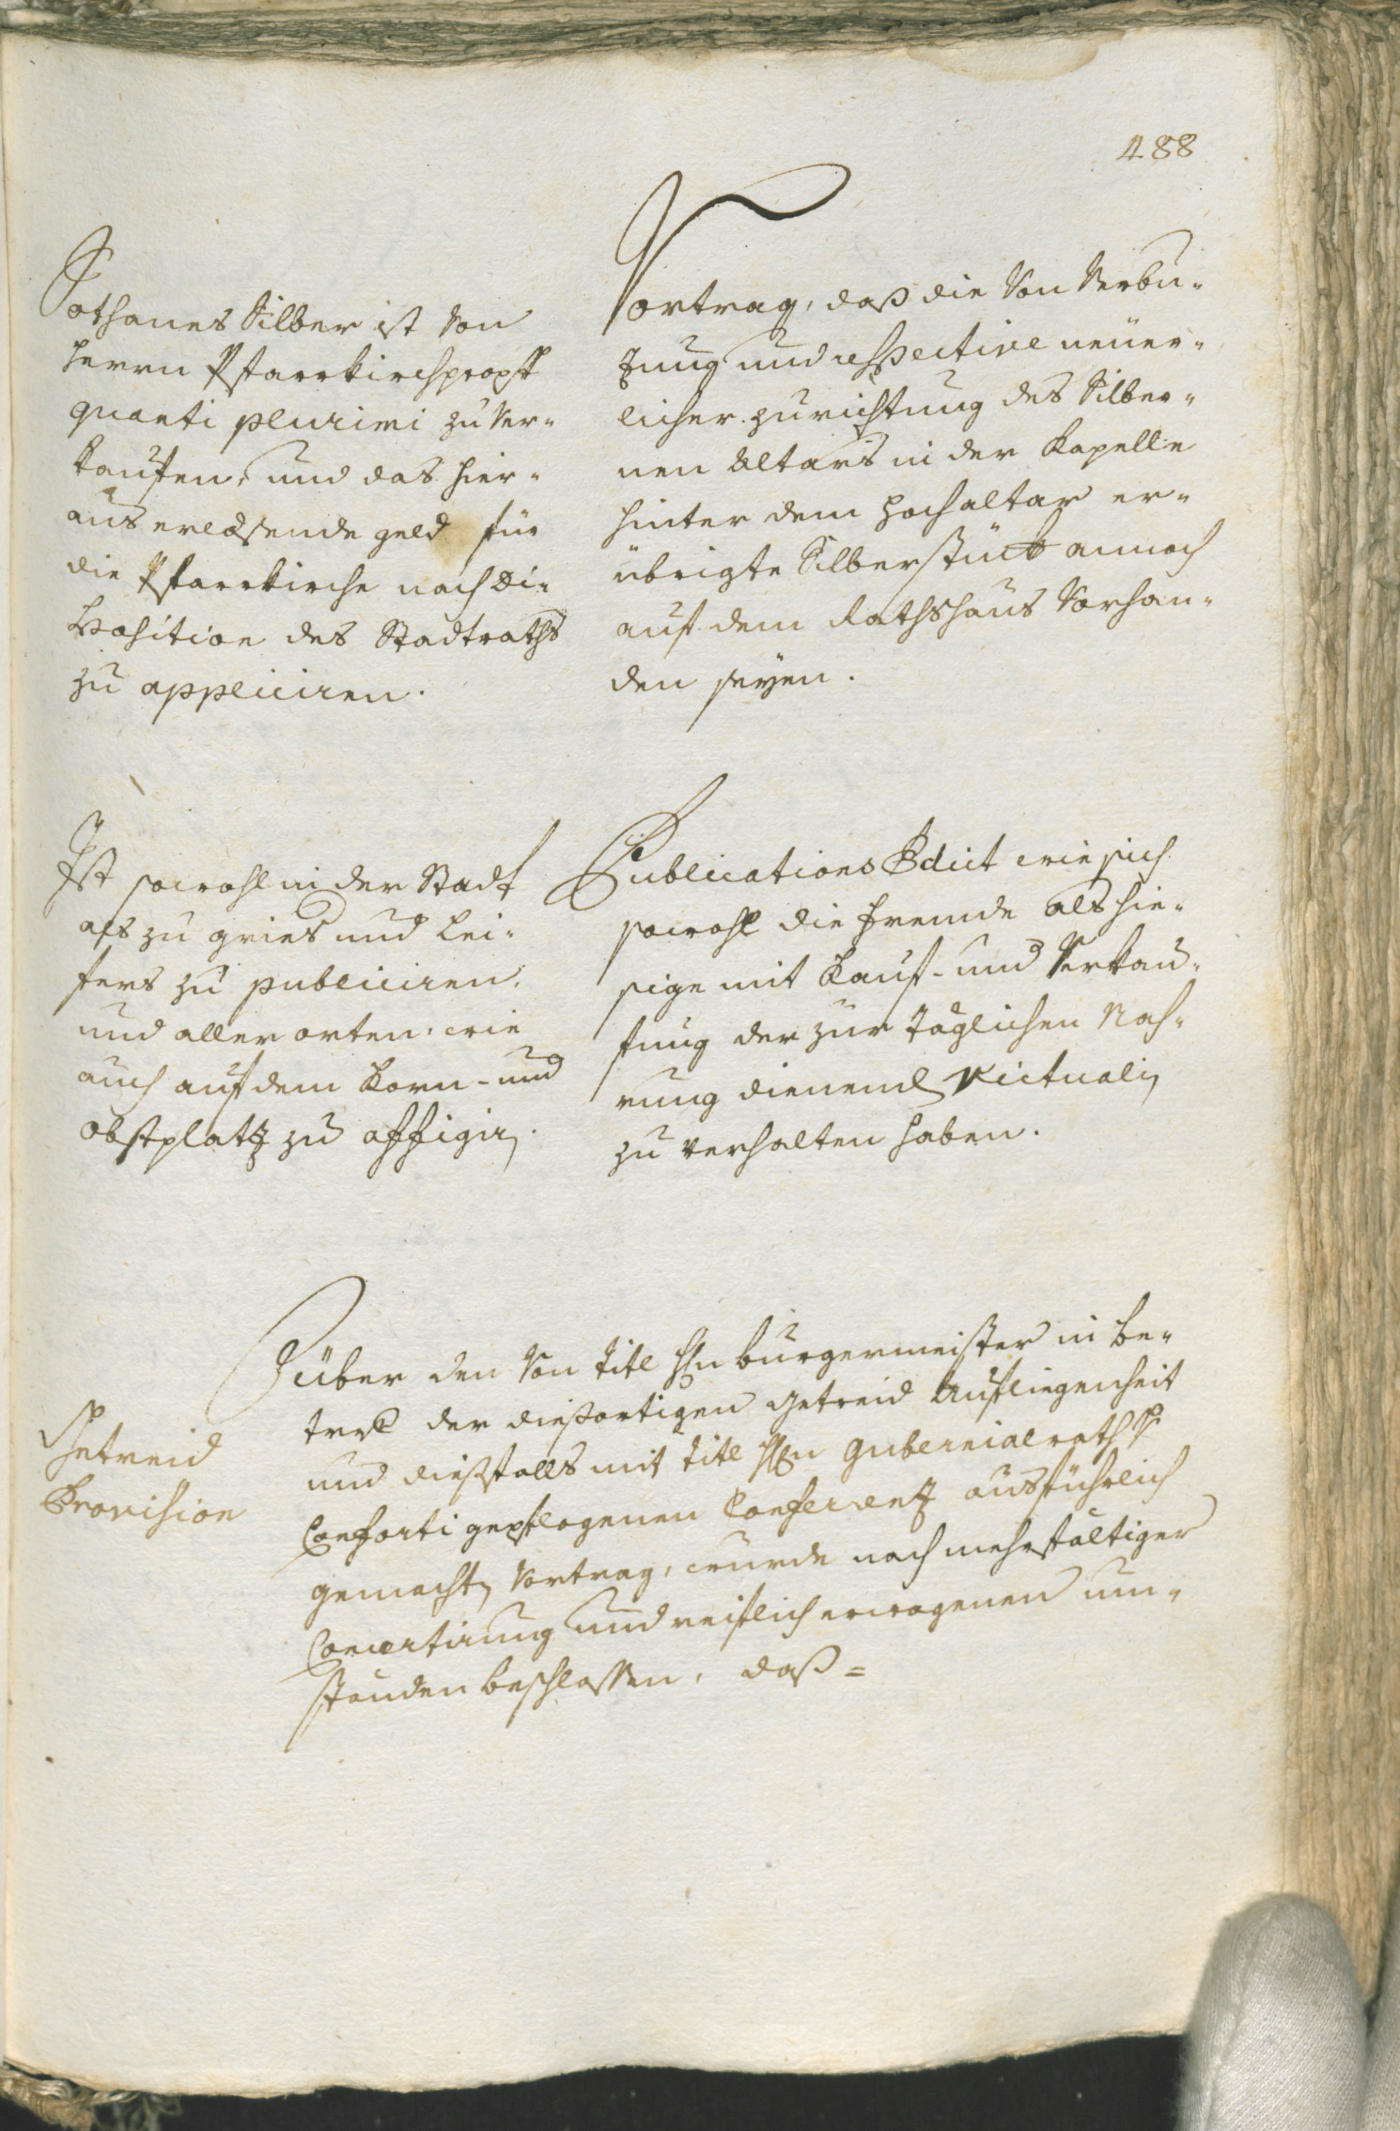 488
Sothanes Silber ist von
herrn Pfarrkirchpropst
quanti plurimi zu ver-
kaufen, und das hier-
aus erlosende geld für
die Pfarrkirche nach Di-
sposition des Stadtraths
zu appliciren.
Vortrag, daß die von Verbu-
zung und respective neüer-
licher zurichtung des Silber-
nen Altars in der Kapelle
hinter dem hochaltar er-
übrigte Silberstück annoch
auf dem Rathshaus vorhan-
den seyen.
Ist sowohl in der Stadt
als zu gries und Lei-
fers zu publiciren,
und aller orten, wie
auch auf dem Korn- und
obstplatz zu affigirn.
Publications Edict wie sich
sowohl die fremde als hie-
sige mit Kauf- und Verkau-
fung der zur täglichen Nah-
rung dienend Victualin
zu verhalten haben.
Getreid
Provision
Über den von titl Hrn burgermeister in be-
tref der dießortigen Getreid Aufliegenheit
und dießfalls mit titl Hrn gubernialrath v
Conforti gepflogenen Conferentz ausführlich
gemachtn Vortrag, wurde nach mehrfältiger
Concertirung und reiflich erwogenen um-
ständen beschlossen, daß =